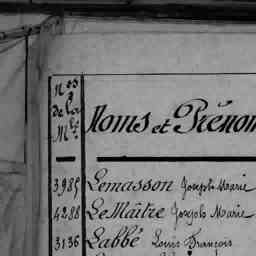 Nos
de la
Mle
Noms et Prénom
3985 Lemasson Joseph Marie
4288 LeMaître Joseph Marie
3136 Labbé Louis François